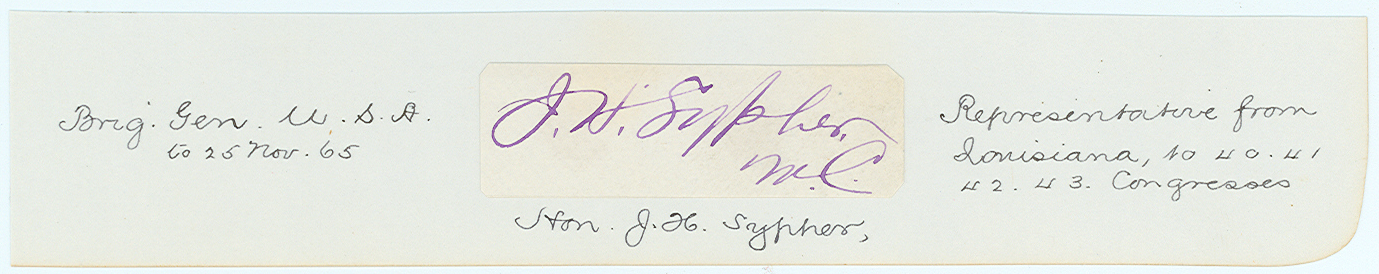 Brig. Gen. U.S.A.
to 25 Nov. 65
J. H. Sypher,
M.C.
Hon. J. H. Sypher,
Representative from
Louisiana, to 40. 41
42. 43. Congresses